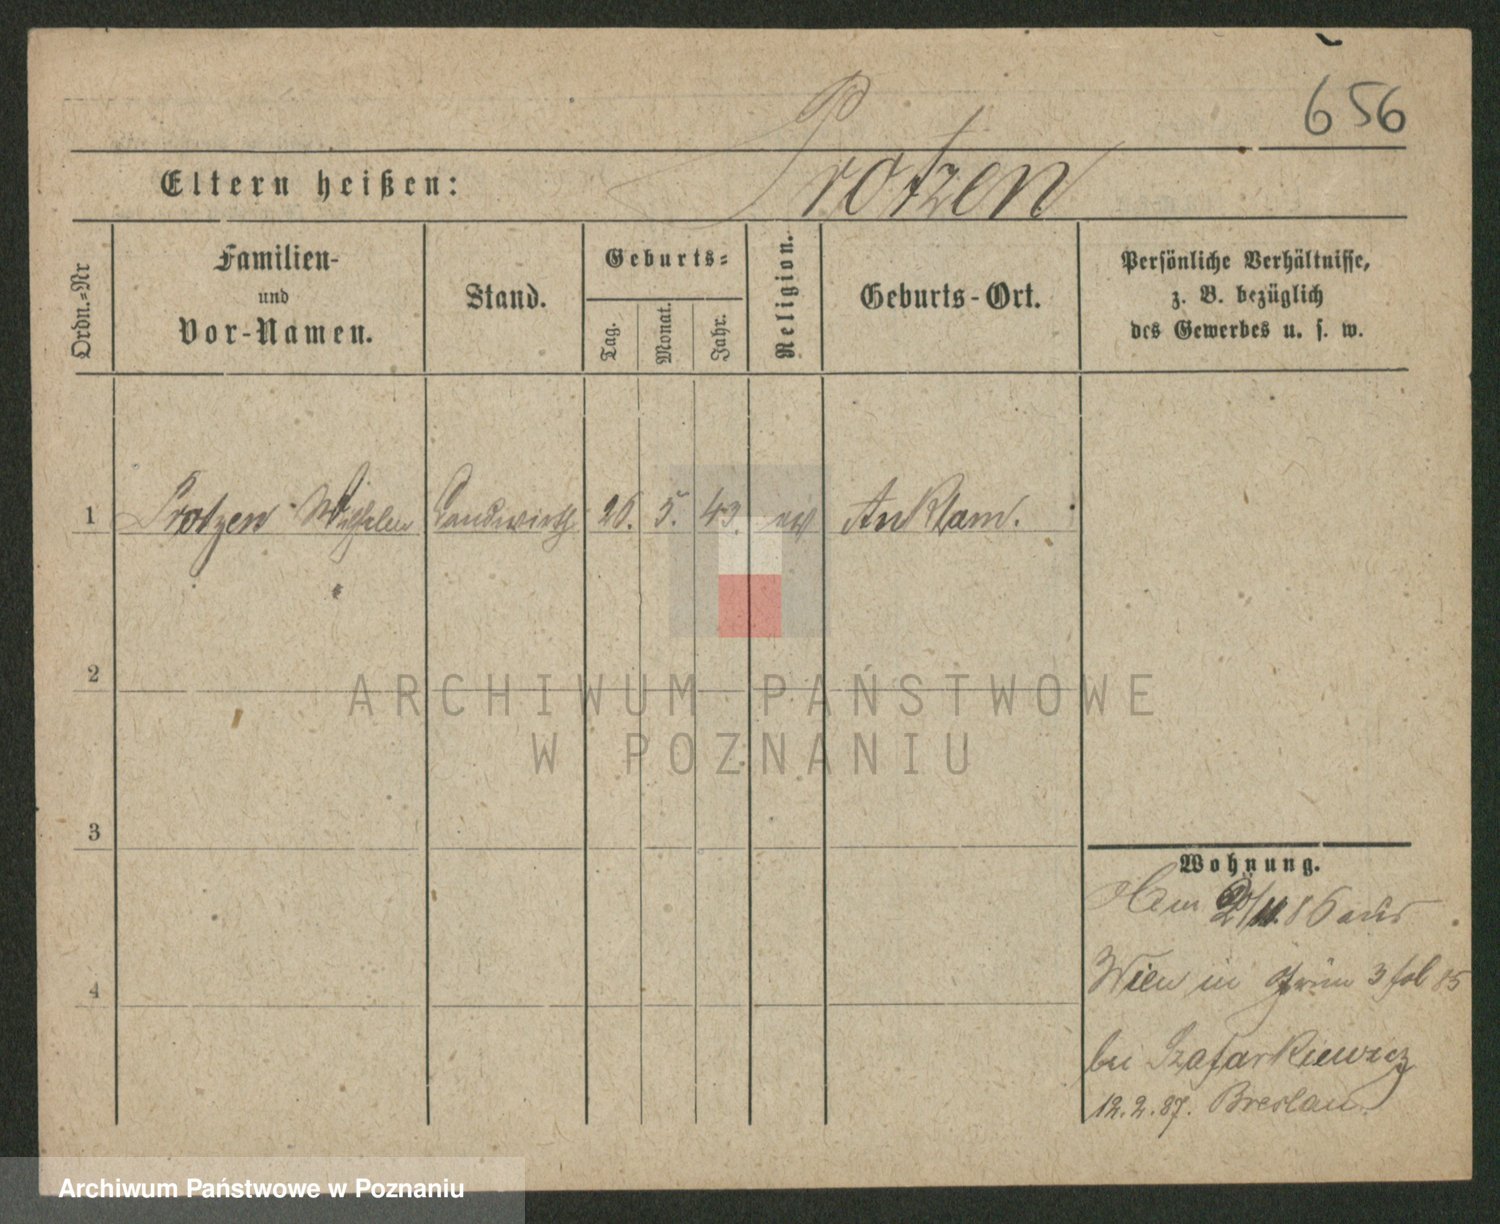 656
Eltern heißen: Protzen
Ordn.=Nr
Familien-
und
Vor-Namen.
Stand.
Geburts=
Tag.
Monat.
Jahr.
Religion.
Geburts-Ort.
Persönliche Verhältnisse,
z. B. bezüglich
des Gewerbes u. s. w.
1 Protzen Wilhelm Landwirth 26. 5. 43. ev Anklam.
2
3
4
Wohnung.
86 aus
Wien in 3 fol 85
bei Szafarkiewicz
12.2.87. Breslau
ARCHIWUM PAŃSTWOWE
W POZNANIU
Archiwum Państwowe w Poznaniu